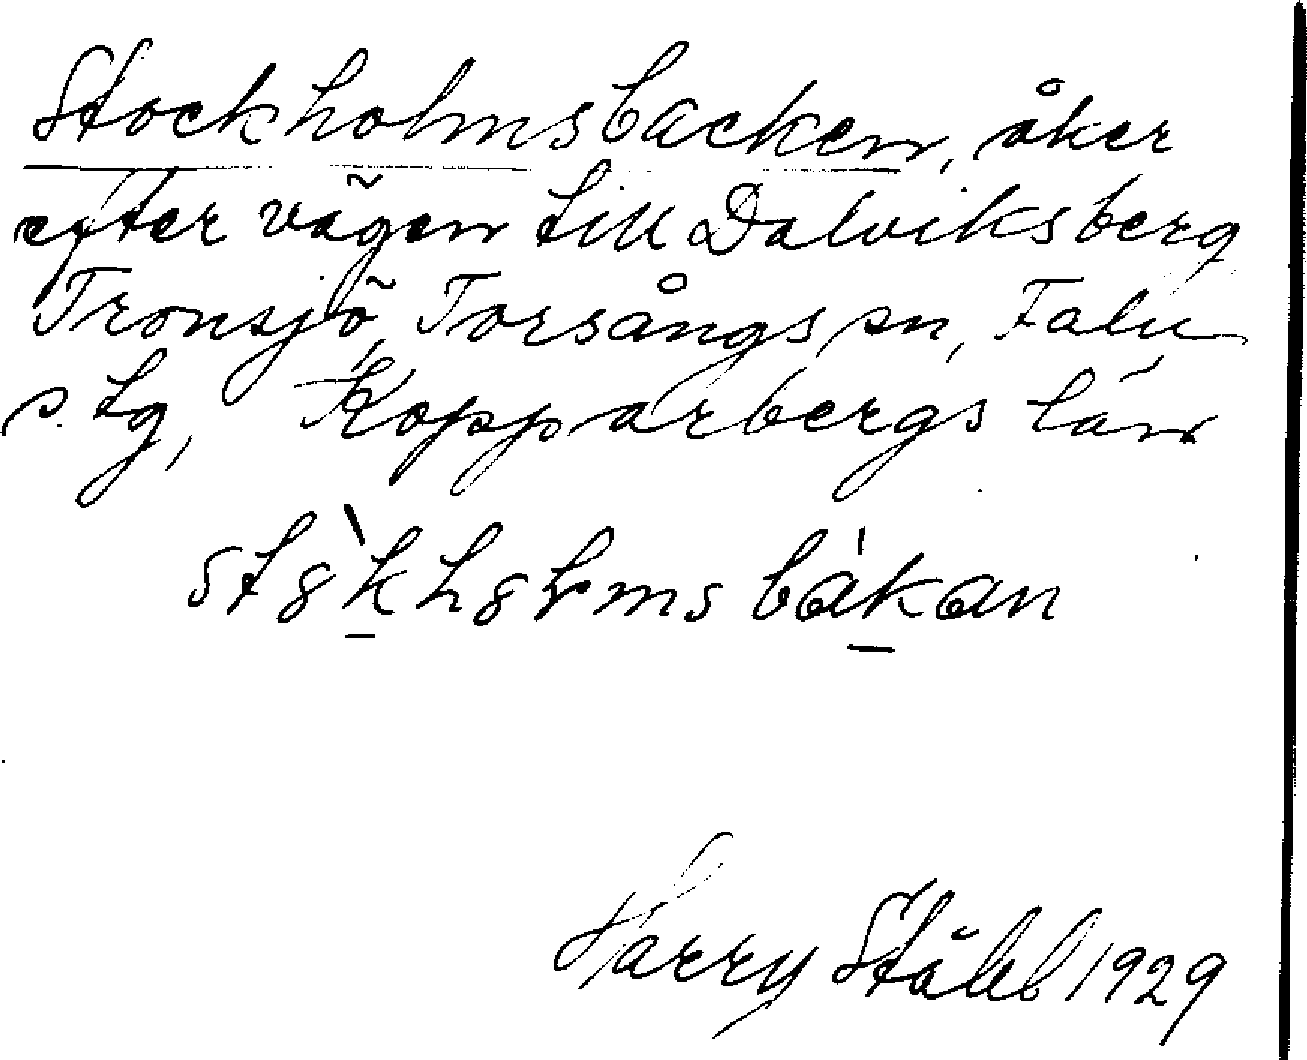 Stockholmsbacken, åker
efter vägen till Dalviksberg
Tronsjö, Torsångs sn, Falu
s. tg, Kopparbergs län
Harry Ståhl 1929